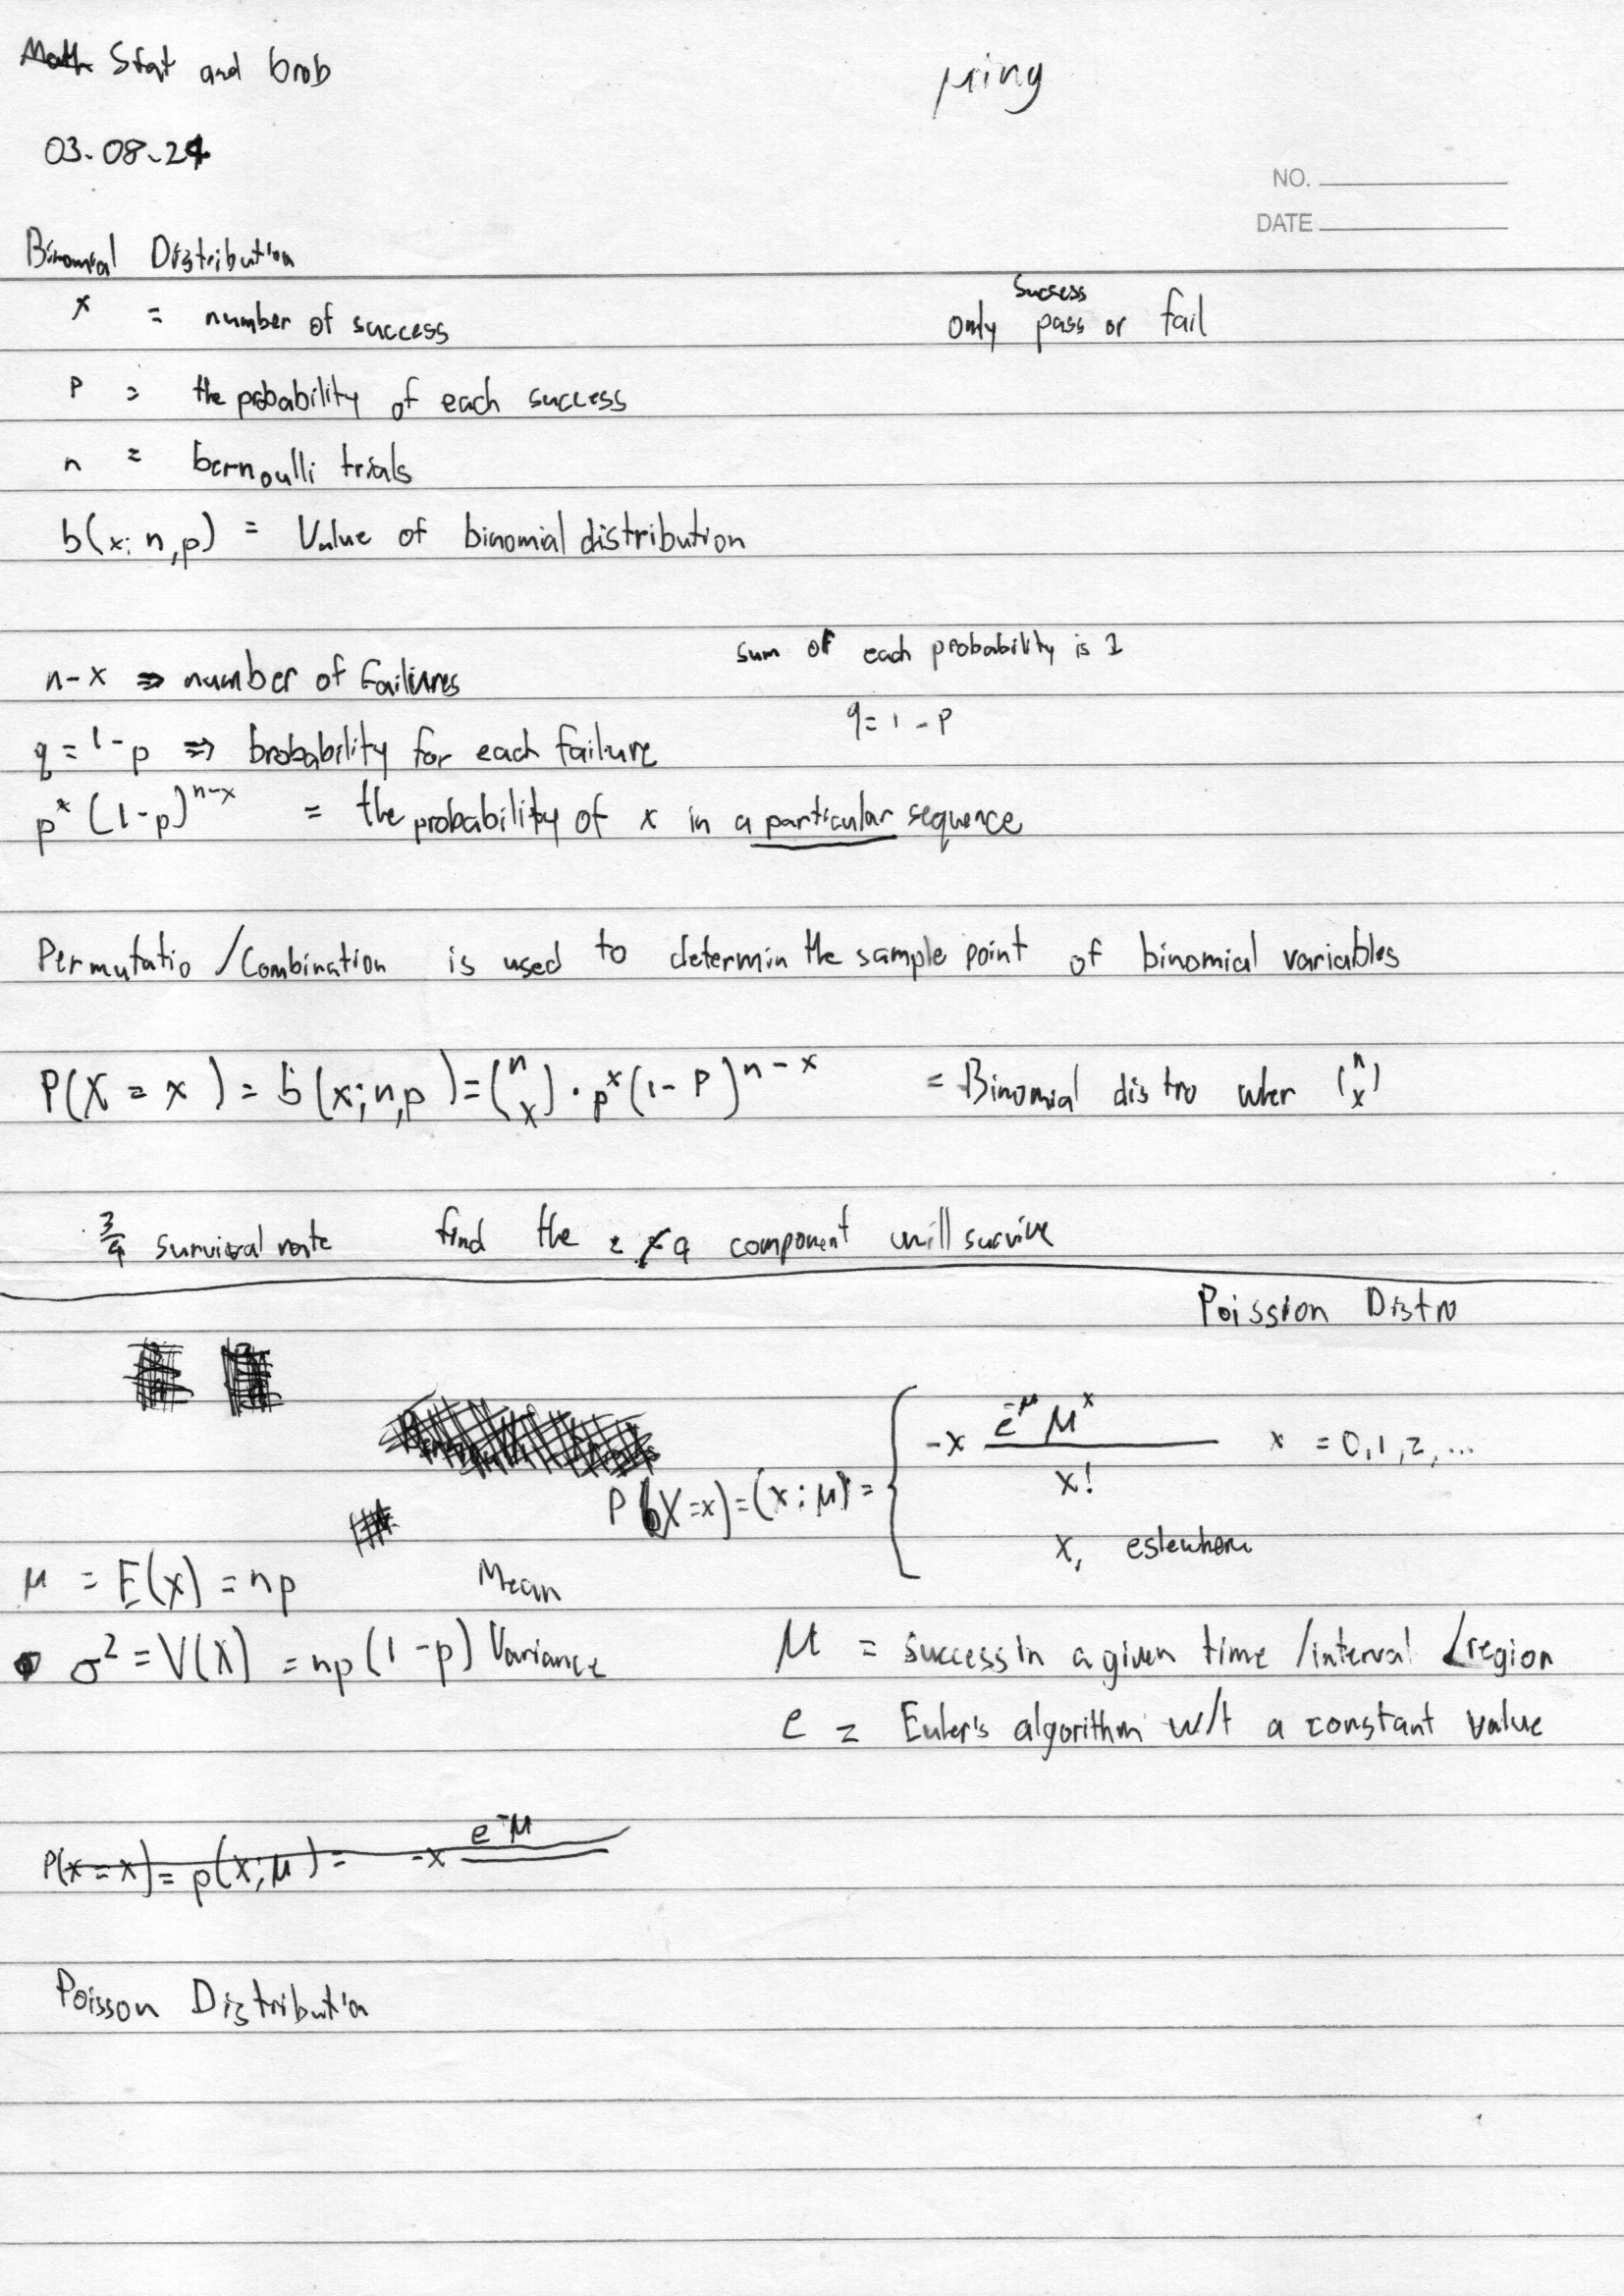 Math Stat and brob
μing
03-08-24
NO.
DATE
Binomial Distribution
x = number of success
success
only pass or fail
P = the probability of each success
n = bernoulli trials
b(x; n,p) = Value of binomial distribution
sum of each probability is 1
n-x ⇒ number of Failiures
q = 1 - P
q = 1-p ⇒ brobability for each failure
p^x (1-p)^{n-x} = the probability of x in a particular sequence
Permutatio /Combination is used to determin the sample point of binomial variables
P(X = x) = b(x;n,p) = (n x) · p^x (1-P)^{n-x} = Binomial distro wher (n x)
3/4 survival rate find the 2 4 component will survive
Poission Distro
P(X=x) = (x; μ) = { -x e^{-μ} μ^x / x! x = 0,1,2,...
x, eslewhere
μ = E(x) = np Mean
σ² = V(X) = np(1-p) Variance
μ = success in a given time /interval /region
e = Euler's algorithm w/t a constant value
P(x=x) = p(x;μ) = -x e^{-μ}
Poisson Distribution